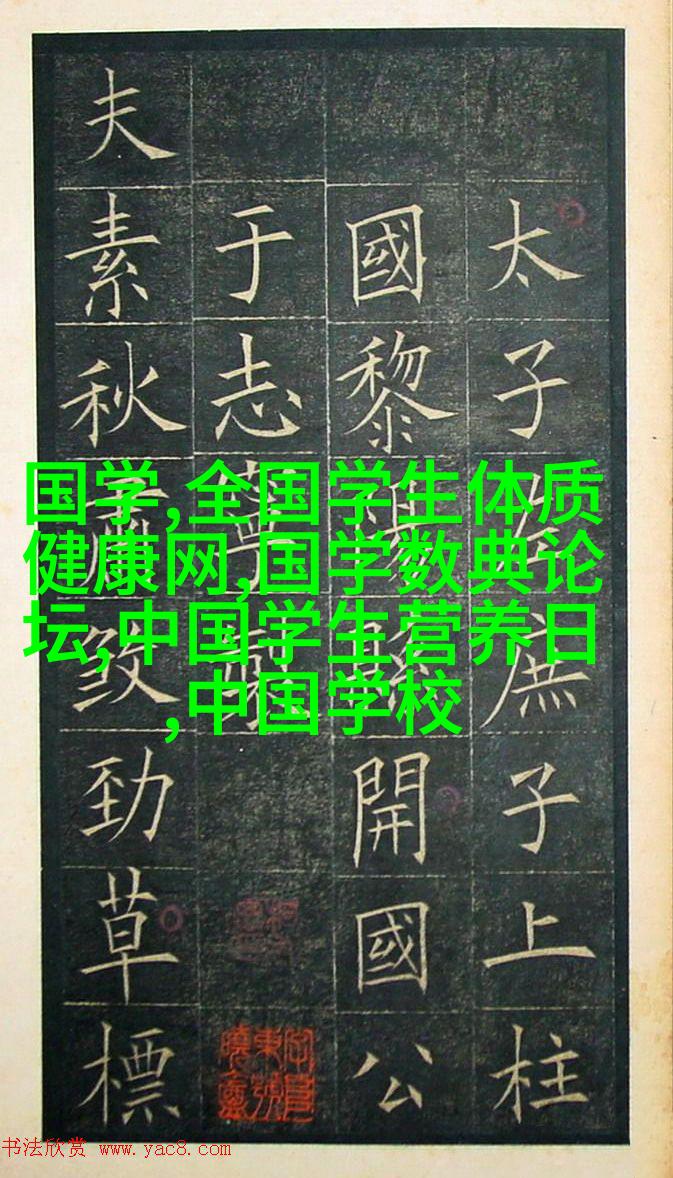 国学,全国学生体质
健康网,国学数典论
坛,中国学生营养日
,中国学校
太子左庶子上柱
國黎陽縣開國公
于志寧製
夫素秋肅煞勁草標
书法欣赏 www.yac8.com